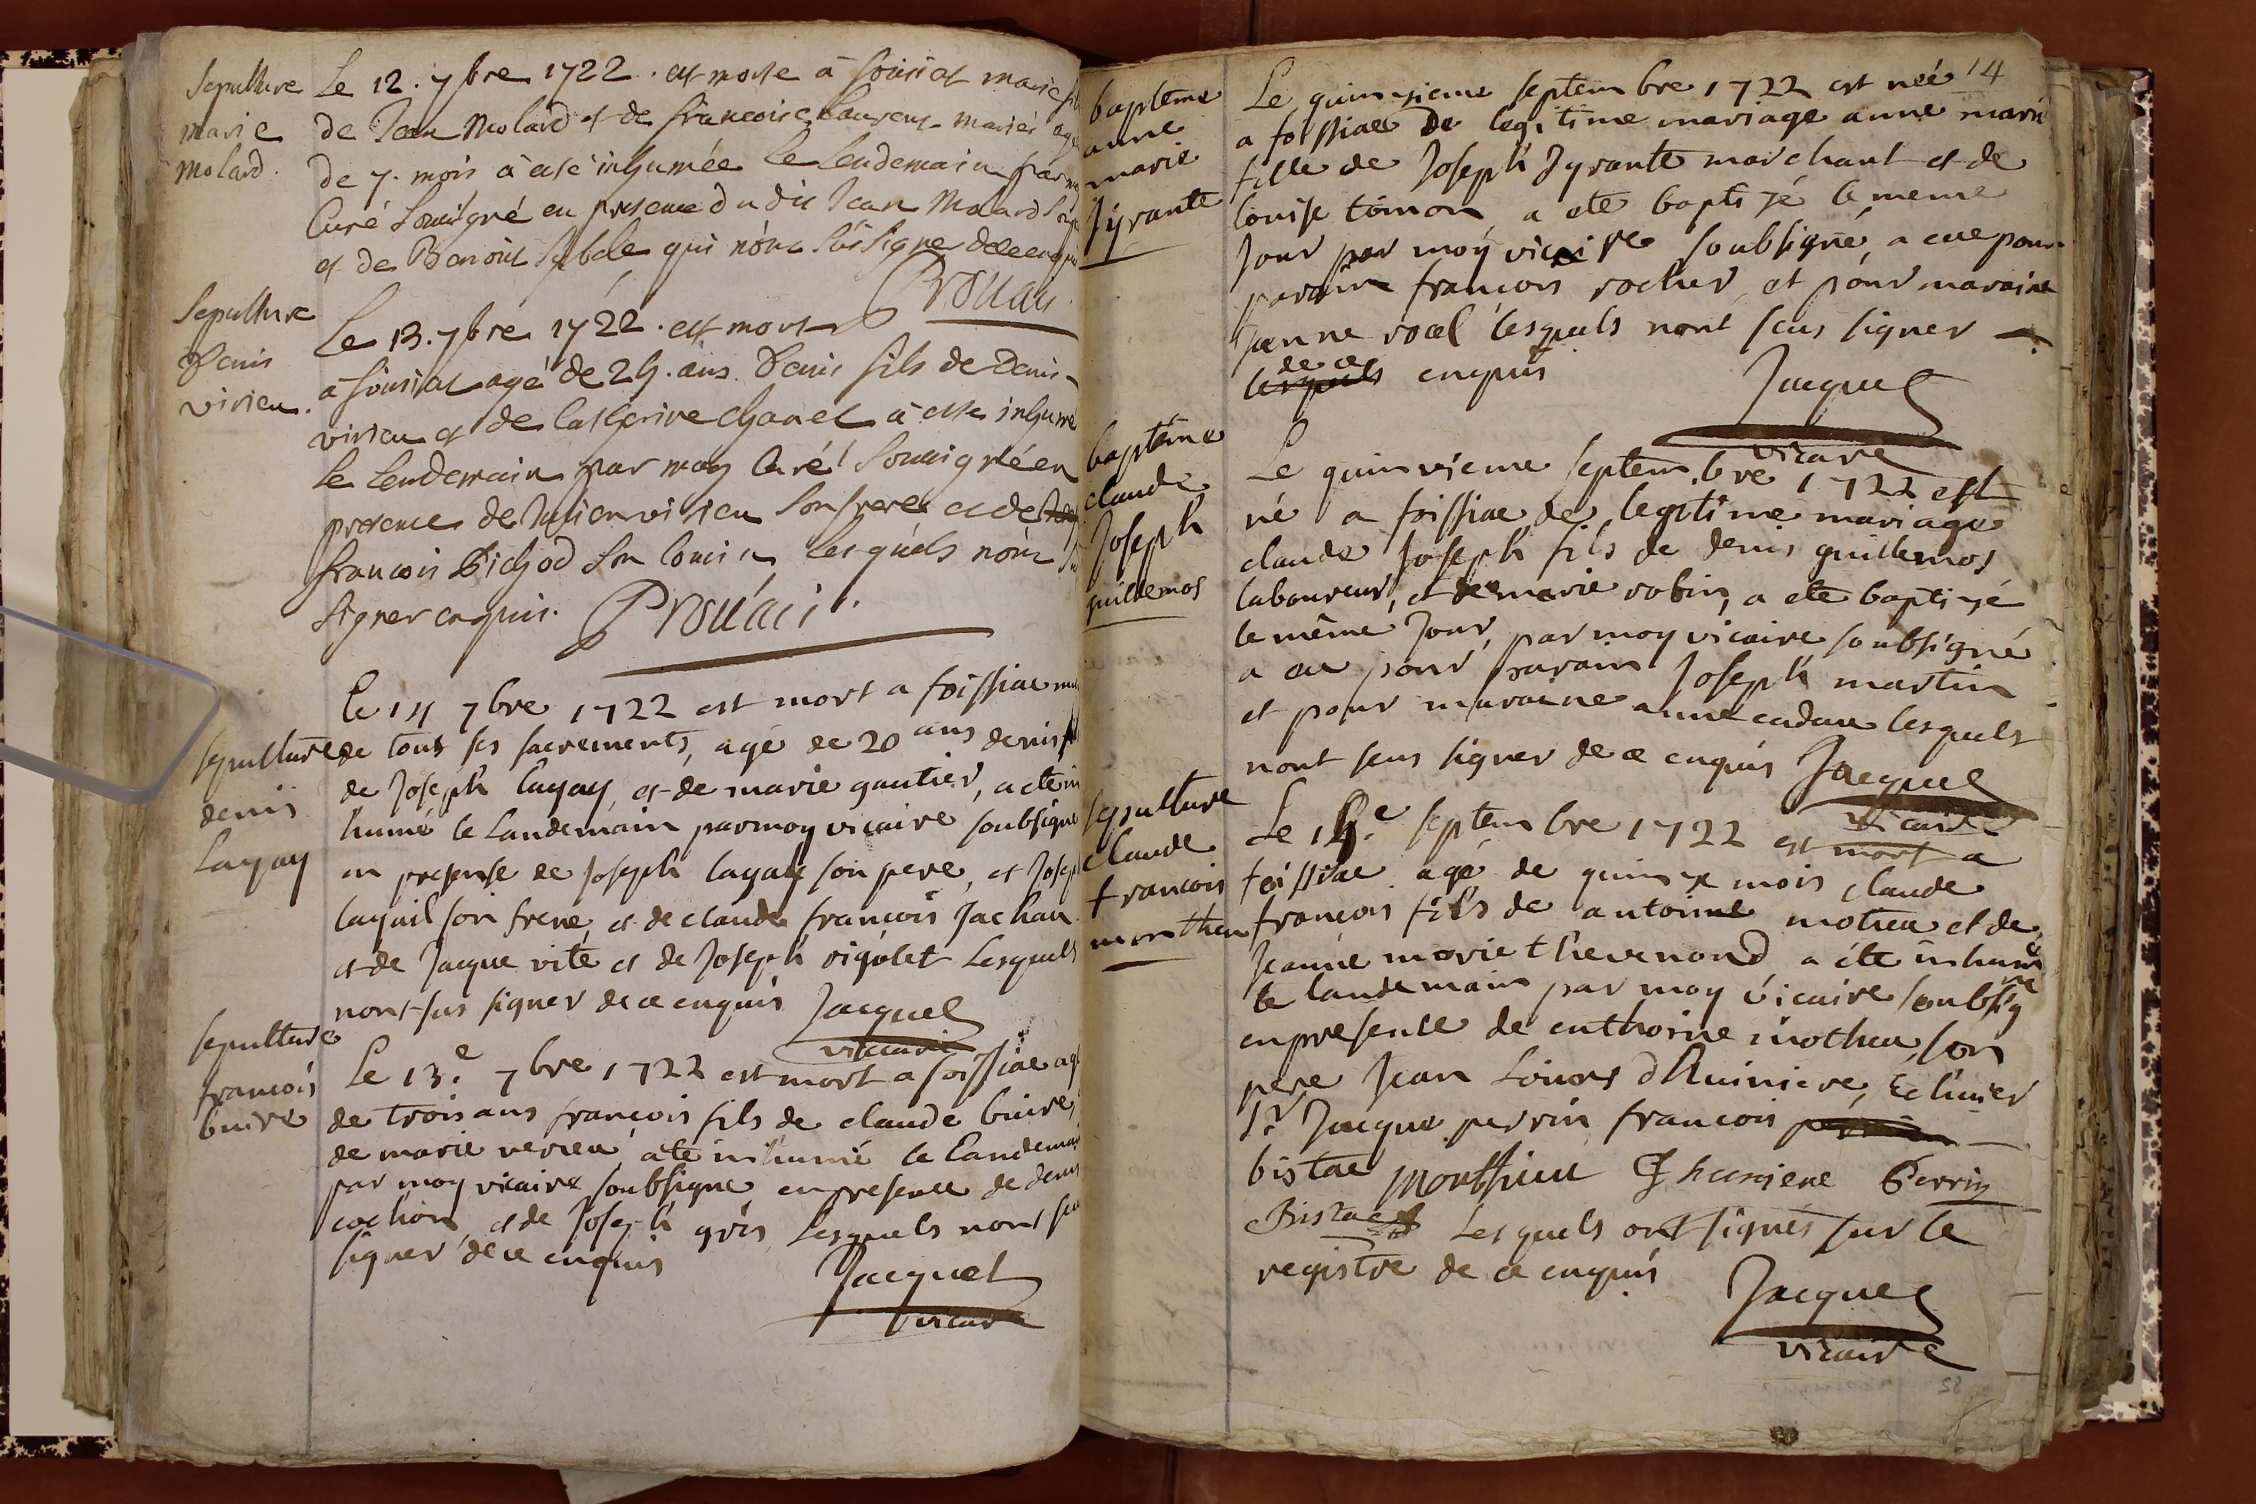 Sepulture
marie
molard.
Le 12. 7bre 1722. est morte à foissiat marie
de Jean Molard et de francoise Laurent mariés
de 7. mois à esté inhumée le lendemain par
Curé soussigné en presence dudit Jean Molard
et de Benoit qui nont sçu signer de ce enquis
Prouais
Sepulture
Denis
virieu.
Le 13. 7bre 1722. est mort
à foissiat agé de 24. ans Denis fils de Denis
virieu et de Catherine Chanel à esté inhumé
le lendemain par moy Curé soussigné en
presence de Julien virieu son frere et de
francois Pichod son cousin lesquels nont
signer enquis. Prouais.
sepulture
denis
Layay
Le 14 7bre 1722 est mort a foissiac
de tous ses sacrements, agé de 20 ans denis
de Joseph layay, et de marie gautier, a ete in
humé le landemain par moy vicaire soubsigne
en presense de Joseph layay son pere, et Joseph
layail son frere, et de claude françois Jachan
et de Jacque vite et de Joseph rigolet Lesquels
nont sus signer de ce enquis Jacquet
vicaire
sepulture
francois
buire
Le 13.e 7bre 1722 est mort a foissiac agé
de trois ans françois fils de claude buire,
de marie verieu, a ete inhumé le landemain
par moy vicaire soubsigne en presence de denis
cochon, et de Joseph gris Lesquels nont
signer de ce enquis
Jacquet
vicaire
14
baptême
anne
marie
Jyrante
Le quinzieme septembre 1722 est née
a foissiac De legitime mariage anne marie
fille de Joseph Jyrante marchant et de
louise timon a ete baptizé le meme
Jour par moy vicaire soubsigné, a eue pour
parain francois rocher, et pour maraine
Janne roel lesquels nont seus signer
de ce
lesquels enquis
Jacquet
vicaire
baptême
claude
Joseph
guillemos
Le quinzieme septembre 1722 est
né a foissiac de legitime mariage
claude Joseph fils de denis guillemos
laboureur, et de marie robin, a ete baptizé
le même Jour, par moy vicaire soubsigné
a eu pour parain Joseph martin
et pour maraine anne cadau lesquels
nont seus signer de ce enquis Jacquet
vicaire
sepulture
claude
francois
monthieu
Le 14.e septembre 1722 est mort a
foissiac agé de quinze mois claude
françois fils de antoine motieu et de
Jeanne marie thevenond, a éte inhumé
le landemain par moy vicaire soubsigné
en presense de enthoine motheu, son
pere Jean Louors dhuiniere, Ecluier
Sr Jacque perrin francois
bistac Monthieu Dhuniere Perrin
Bistac Lesquels ont signés sur le
registre de ce enquis
Jacquet
vicaire